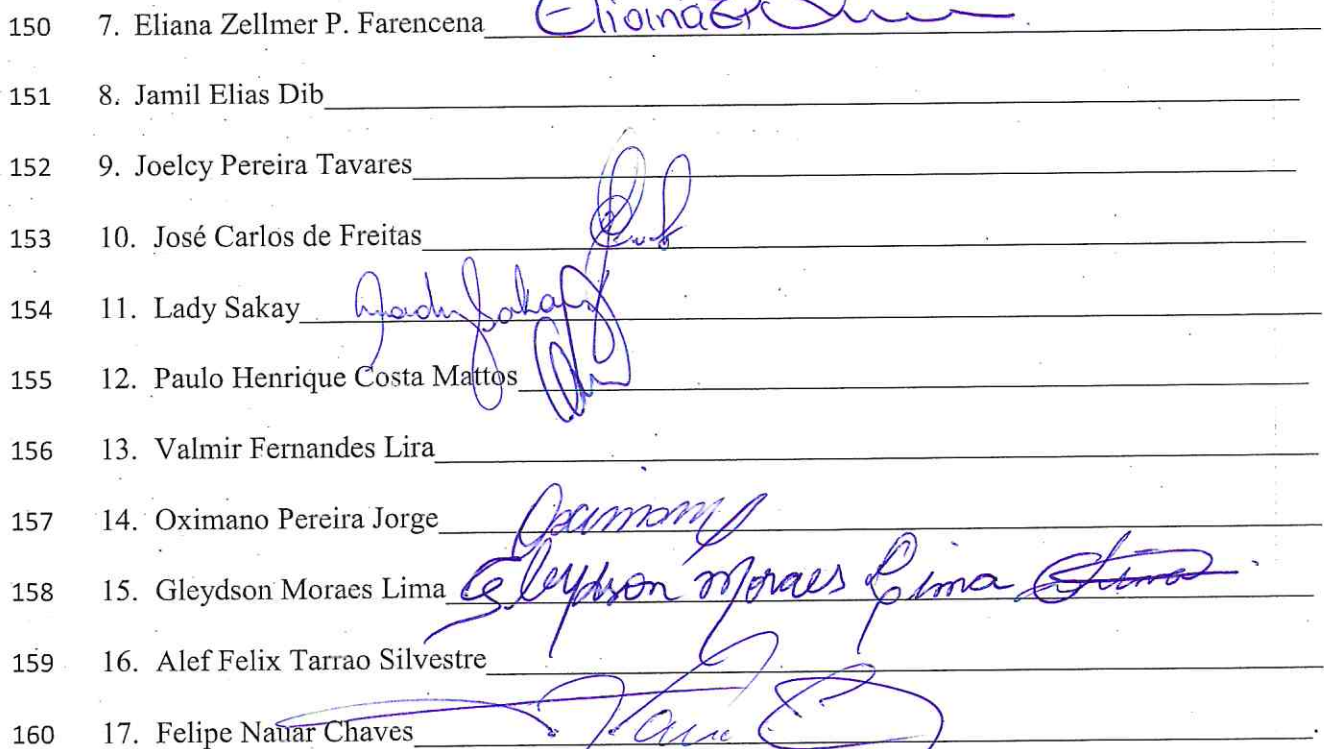 150 7. Eliana Zellmer P. Farencena
151 8. Jamil Elias Dib
152 9. Joelcy Pereira Tavares
153 10. José Carlos de Freitas
154 11. Lady Sakay Lady Sakay
155 12. Paulo Henrique Costa Mattos
156 13. Valmir Fernandes Lira
157 14. Oximano Pereira Jorge
158 15. Gleydson Moraes Lima Gleydson Moraes Lima
159 16. Alef Felix Tarrao Silvestre
160 17. Felipe Nauar Chaves